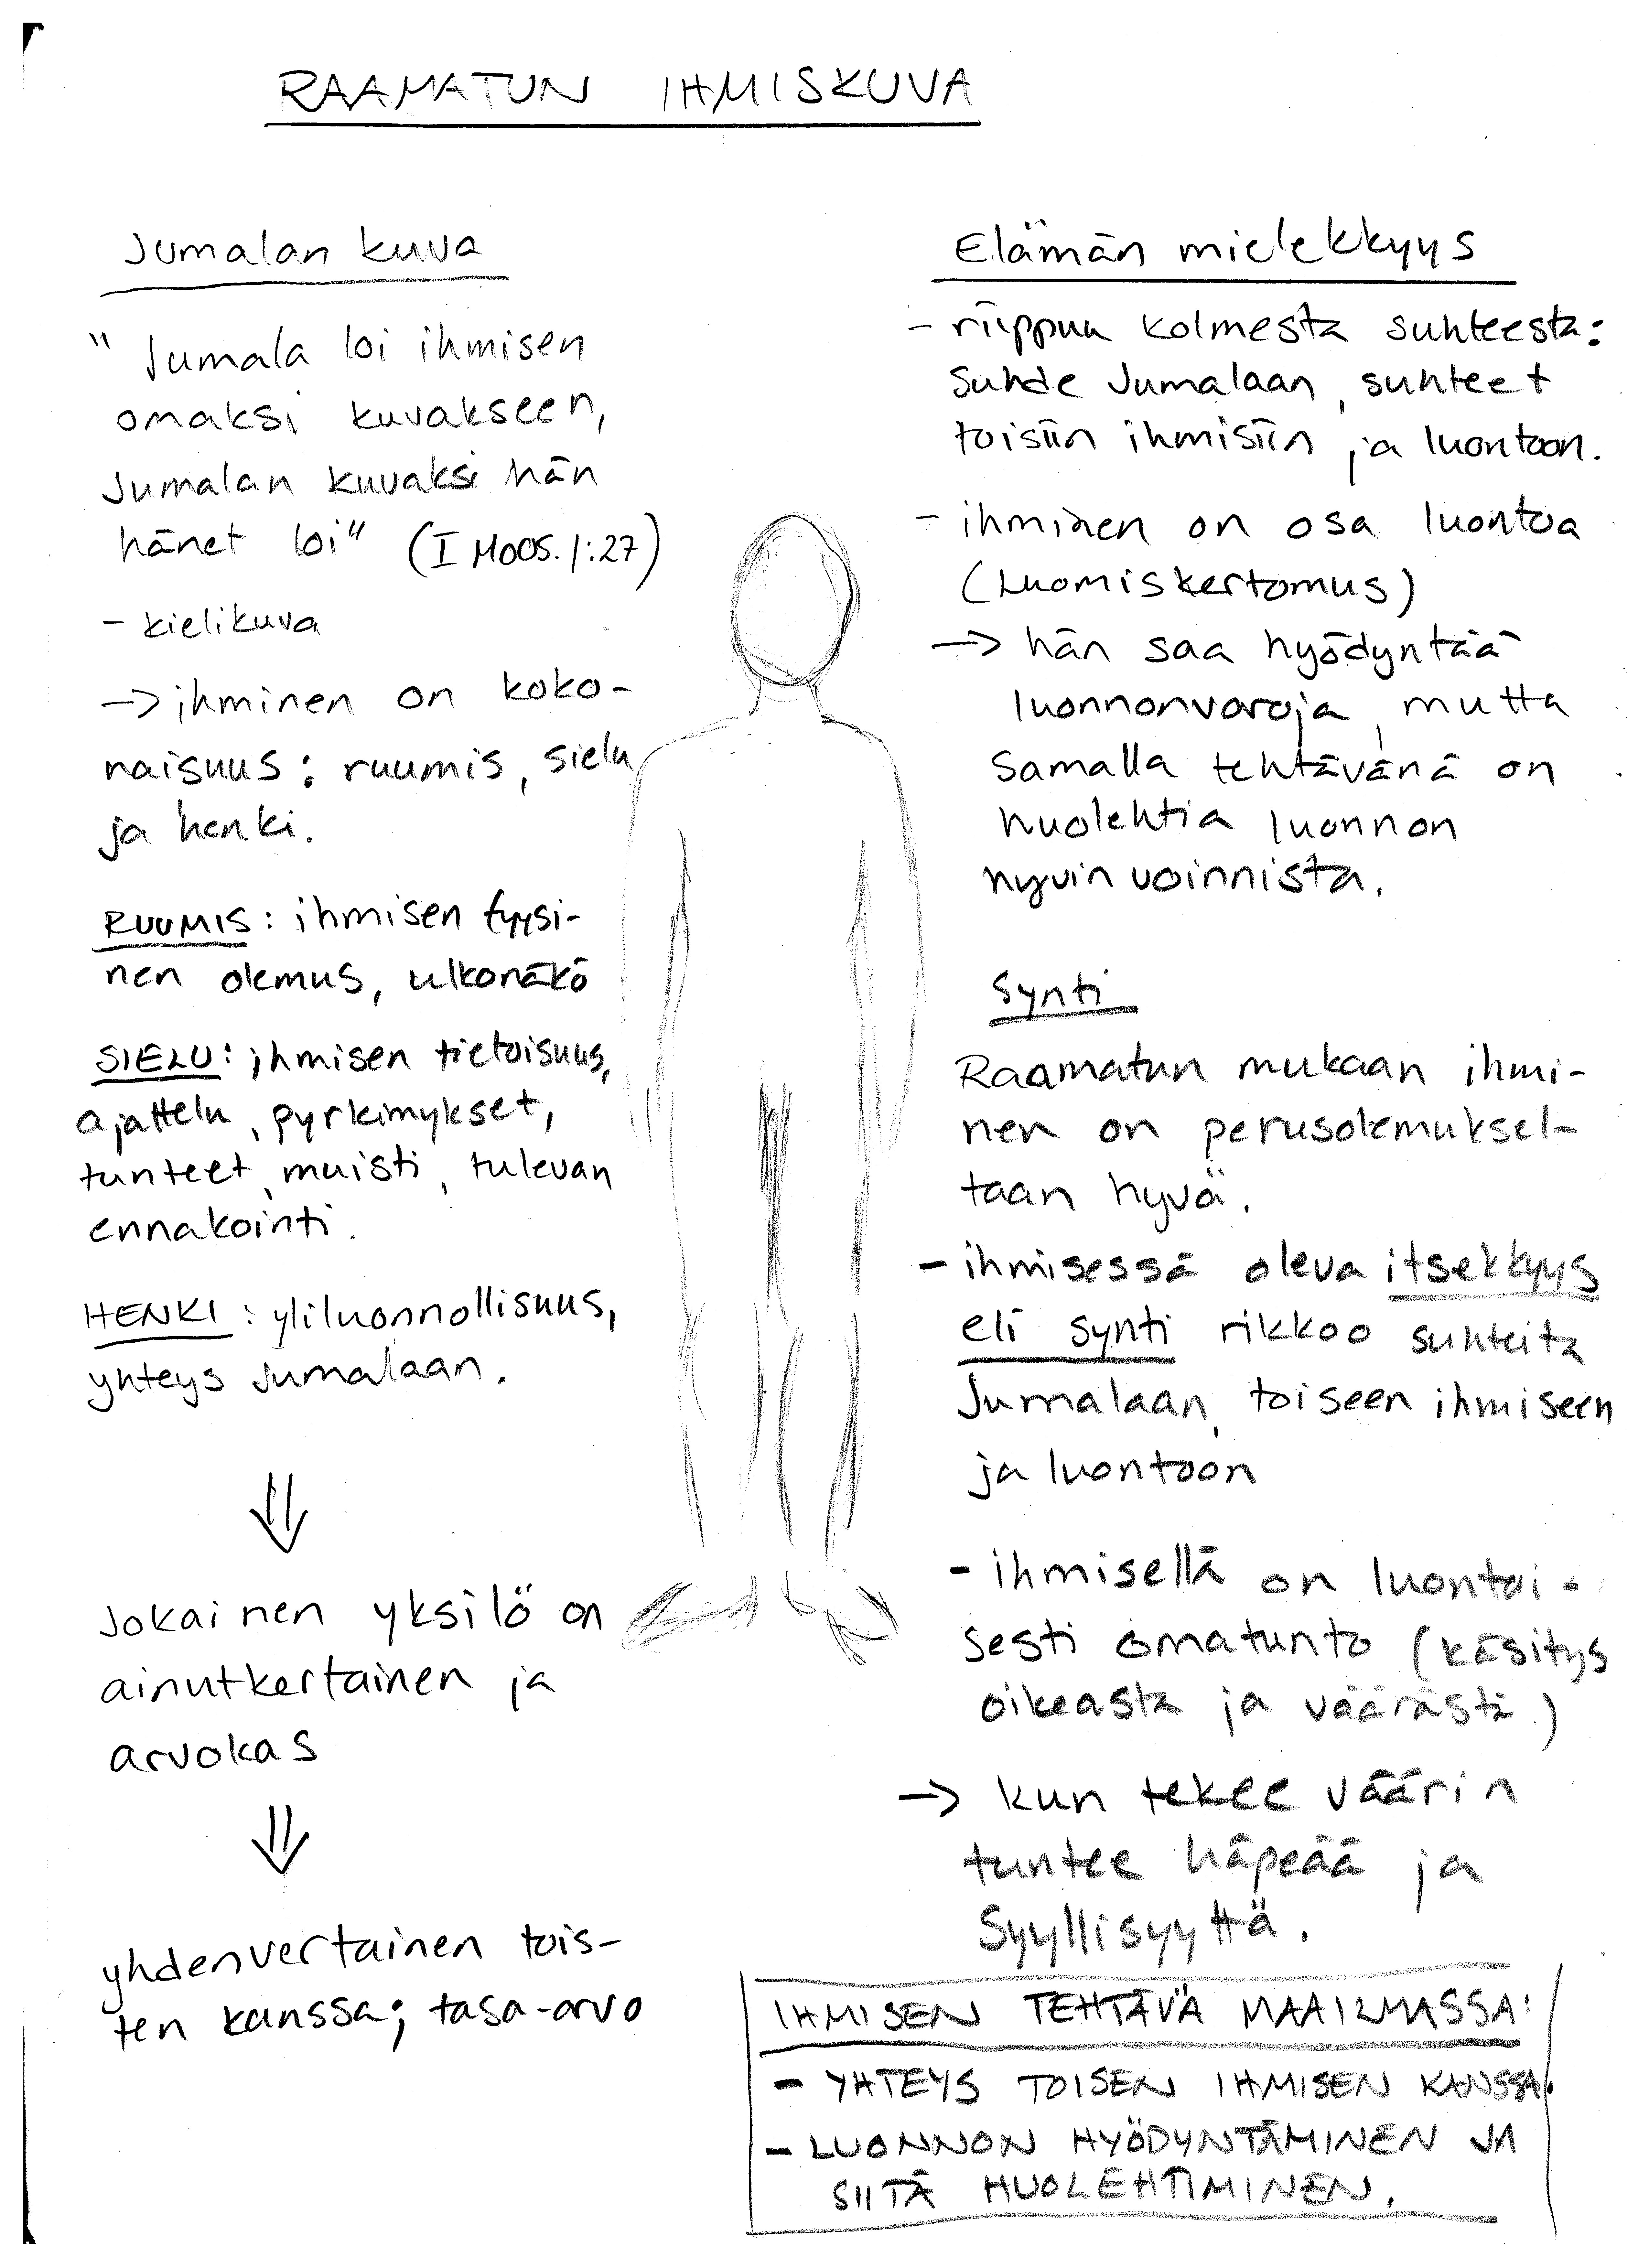 RAAMATUN IHMISKUVA
Jumalan kuva
"Jumala loi ihmisen
omaksi kuvakseen,
Jumalan kuvaksi hän
hänet loi" (I MOOS. 1:27)
- kielikuva
-> ihminen on koko-
naisuus: ruumis, sielu
ja henki.
RUUMIS: ihmisen fyysi-
nen olemus, ulkonäkö
SIELU: ihmisen tietoisuus,
ajattelu, pyrkimykset,
tunteet, muisti, tulevan
ennakointi.
HENKI: yliluonnollisuus,
yhteys Jumalaan.
⇓
Jokainen yksilö on
ainutkertainen ja
arvokas
⇓
yhdenvertainen tois-
ten kanssa; tasa-arvo
Elämän mielekkyys
- riippuu kolmesta suhteesta:
suhde Jumalaan, suhteet
toisiin ihmisiin ja luontoon.
- ihminen on osa luontoa
(Luomiskertomus)
-> hän saa hyödyntää
luonnonvaroja, mutta
samalla tehtävänä on
huolehtia luonnon
hyvinvoinnista.
Synti
Raamatun mukaan ihmi-
nen on perusolemuksel-
taan hyvä.
- ihmisessä oleva itsekkyys
eli synti rikkoo suhteita
Jumalaan, toiseen ihmiseen
ja luontoon
- ihmisellä on luontai-
sesti omatunto (käsitys
oikeasta ja väärästä.)
-> kun tekee väärin
tuntee häpeää ja
Syyllisyyttä.
IHMISEN TEHTÄVÄ MAAILMASSA:
- YHTEYS TOISEN IHMISEN KANSSA.
- LUONNON HYÖDYNTÄMINEN JA
SIITÄ HUOLEHTIMINEN.